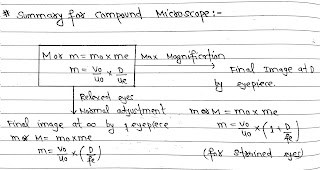 # Summary for Compound Microscope:-
M or m = mo x me
m = vo/uo x D/ue
Max Magnification
Final Image at D
by eyepiece.
Relaxed eyes
Normal adjustment
Final image at ∞ by eyepiece
m or M = mo x me
m = vo/uo x (D/fe)
m or M = mo x me
m = vo/uo x (1 + D/fe)
(for strained eyes)